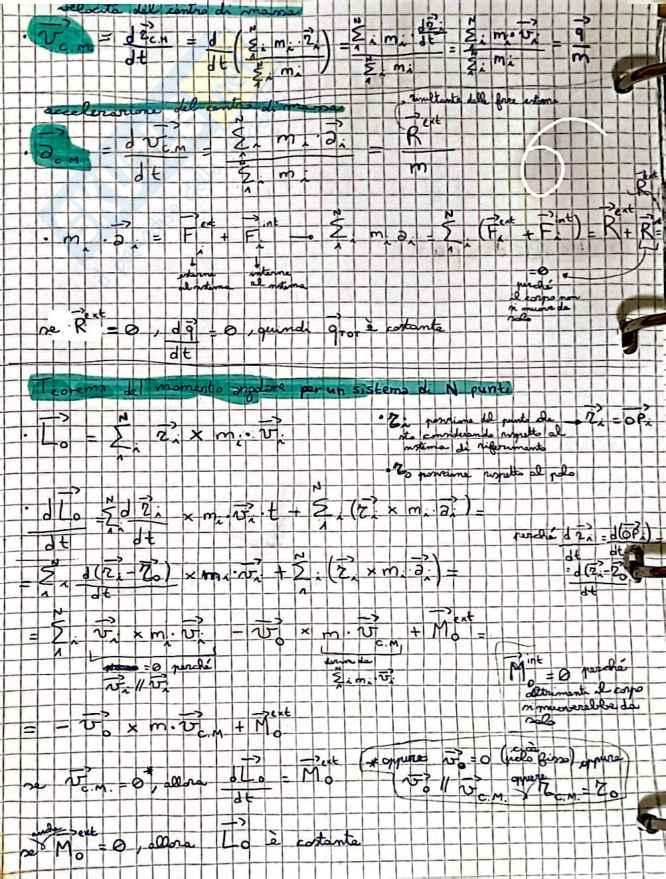 velocità del centro di massa
· v⃗_C.M. = d r⃗_C.M/dt = d/dt (Σ₁ᴺᵢ mᵢ · r⃗ᵢ / Σ₁ᴺᵢ mᵢ) = Σ₁ᴺᵢ mᵢ · d r⃗ᵢ/dt / Σ₁ᴺᵢ mᵢ = Σ₁ᴺᵢ mᵢ · v⃗ᵢ / Σ₁ᴺᵢ mᵢ = q⃗/m
accelerazione del centro di massa
risultante delle forze esterne
· a⃗_C.M = d v⃗_C.M/dt = Σ₁ᴺᵢ mᵢ · a⃗ᵢ / Σ₁ᴺᵢ mᵢ = R⃗^ext/m
6
R⃗^ext
· mᵢ · a⃗ᵢ = F⃗ᵢ^ext + F⃗ᵢ^int → Σ₁ᴺᵢ mᵢ aᵢ = Σ₁ᴺᵢ (F⃗ᵢ^ext + F⃗ᵢ^int) = R⃗^ext + R⃗^int =
esterne al sistema
interne al sistema
=0
perché
il corpo non
si muove da
solo
se R⃗^ext = 0, dq⃗/dt = 0, quindi q⃗_TOT è costante
Teorema del momento angolare per un sistema di N punti
· L⃗₀ = Σ₁ᴺᵢ r⃗ᵢ × mᵢ · v⃗ᵢ
· rᵢ posizione del punto che → r⃗ᵢ = OPᵢ
sto considerando rispetto al
sistema di riferimento
· r₀ posizione rispetto al polo
· dL⃗₀/dt = Σ₁ᴺᵢ d r⃗ᵢ/dt × mᵢ · v⃗ᵢ · t + Σ₁ᴺᵢ (r⃗ᵢ × mᵢ · a⃗ᵢ) =
perché d r⃗ᵢ/dt = d(OPᵢ)/dt =
= d(r⃗ᵢ - r⃗₀)/dt
= Σ₁ᴺᵢ d(r⃗ᵢ - r⃗₀)/dt × mᵢ · v⃗ᵢ + Σ₁ᴺᵢ (r⃗ᵢ × mᵢ · a⃗ᵢ) =
= Σ₁ᴺᵢ v⃗ᵢ × mᵢ · v⃗ᵢ - v⃗₀ × m · v⃗_C.M + M⃗₀^ext =
=0 perché
v⃗ᵢ // v⃗ᵢ
deriva da
Σ₁ᴺᵢ mᵢ · v⃗ᵢ
M⃗₀^int = 0 perché
altrimenti il corpo
si muoverebbe da
solo
= - v⃗₀ × m · v⃗_C.M + M⃗₀^ext
se v⃗_C.M. = 0*, allora dL⃗₀/dt = M⃗₀^ext
(*oppure v⃗₀ = 0 (cioè polo fisso) oppure
v⃗₀ // v⃗_C.M. oppure r_C.M. = r₀
se anche M⃗₀^ext = 0, allora L⃗₀ è costante